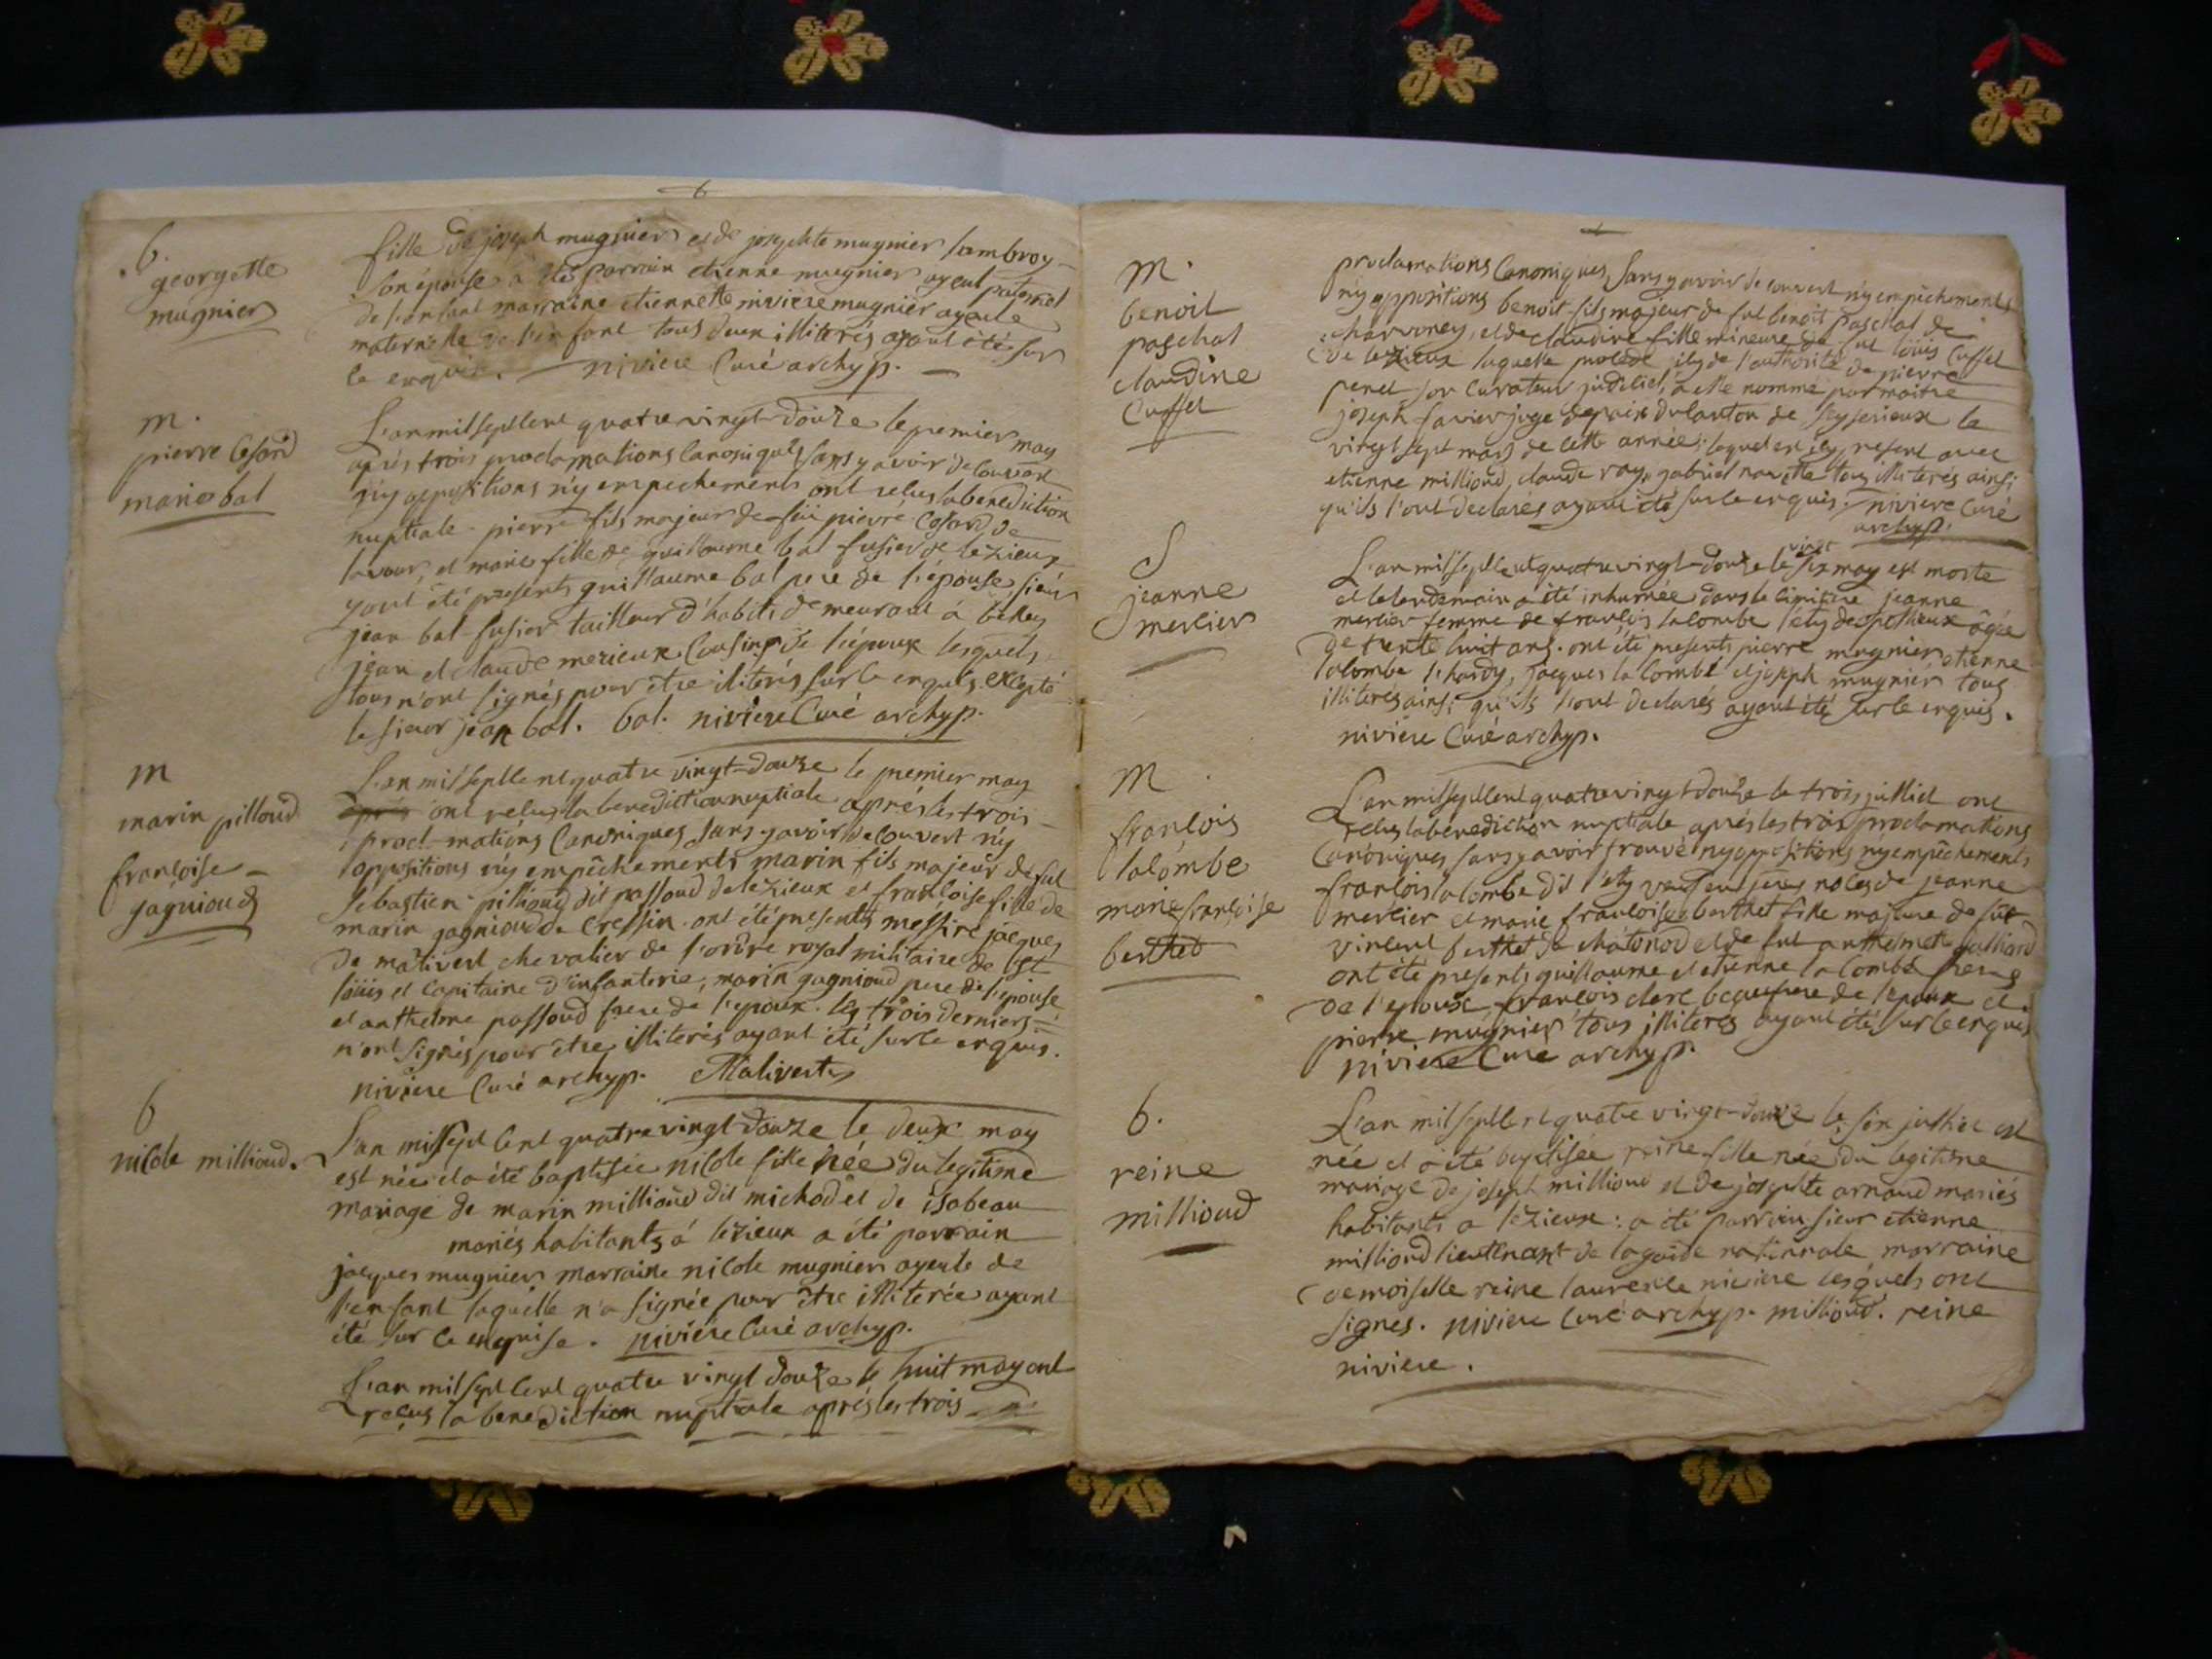 b.
georgette
mugnier
fille de joseph mugnier et de josephte mugnier lambroy
son épouse a été parrain etienne mugnier ayeul paternel
de l'enfant marraine etiennette niviere mugnier ayeule
maternelle de l'enfant tous deux illiterés ayant été sur
ce enquis. niviere Curé archyp.
m.
pierre Cesard
marie bal
L'an mil sept cent quatre vingt douze le premier may
aprés trois proclamations Canoniques sans y avoir decouvert
n'y oppositions n'y empechements ont reçus la benediction
nuptiale pierre fils majeur de feü pierre Cesard de
lavour, et marie fille de guillaume bal fusier de lezieux
y ont été presents guillaume bal pere de l'épouse, sieur
jean bal fusier tailleur d'habits demeurant à belley
jean et claude merieux Cousins de l'époux lesquels
tous n'ont signés pour être illiterés sur ce enquis excepté
le sieur jean bal. bal. niviere Curé archyp.
m
marin pilloud
françoise
gagnioud
L'an mil sept cent quatre vingt-douze le premier may
aprés ont reçus la benediction nuptiale aprés les trois
proclamations Canoniques sans y avoir decouvert n'y
oppositions n'y empêchements marin fils majeur de fut
sebastien pilloud dit passoud de lezieux et françoise fille de
marin gagnioud de Cressin ont été presents messire jacques
de mâlivert chevalier de l'ordre royal militaire de st
loüis et Capitaine d'infanterie, marin gagnioud pere de l'épouse
et anthelme passoud frere de l'epoux. les trois derniers
n'ont signés pour être illiterés ayant été sur ce enquis.
niviere Curé archyp. Malivert
b
nicole millioud.
L'an mil sept cent quatre vingt douze le deux may
est née et a été baptisée nicole fille née du legitime
mariage de marin millioud dit michod et de isabeau
mariés habitants á lezieux a été parrain
jacques mugnier marraine nicole mugnier ayeule de
l'enfant laquelle n'a signée pour être illiterée ayant
été sur ce enquise. niviere Curé archyp.
L'an mil sept cent quatre vingt douze le huit may ont
reçus la benediction nuptiale aprés les trois
m.
benoit
paschal
claudine
Cuffet
proclamations Canoniques, sans y avoir decouvert n'y empêchements
n'y oppositions benoit fils majeur de fut benoit paschal de
charvoney, et de claudine fille mineure de fut loüis Cuffet
de lezieux laquelle procede icy de l'authorité de pierre
penet son Curateur judiciel, à elle nommé par maitre
joseph favier juge de paix du Canton de seysserieux le
vingt sept mars de cette année; lequel est icy present avec
etienne millioud, claude ray, gabriel navette tous illiterés ainsi
qu'ils l'ont declarés ayant été sur ce enquis. niviere Curé
archyp.
S
jeanne
mercier
L'an mil sept cent quatre vingt-douze le vingt six may est morte
et le lendemain a été inhumée dans le cimitiere jeanne
mercier femme de françois lacombe agée
de trente huit ans. ont été presents pierre mugnier, etienne
lacombe l'hardy, jacques lacombe et joseph mugnier tous
illiterés ainsi qu'ils l'ont declarés ayant été sur ce enquis.
niviere Curé archyp.
m.
françois
lacombe
marie françoise
berthet
L'an mil sept cent quatre vingt-douze le trois juillet ont
reçus la benediction nuptiale aprés les trois proclamations
Canoniques, sans y avoir trouvé n'y oppositions n'y empêchements
françois lacombe dit veuf en 1eres noces de jeanne
mercier et marie françoise berthet fille majeure de fut
vincent berthet de châtonod et de fut anthelmette julliard
ont été presents guillaume et etienne lacombe freres
de l'epouse françois clerc beaufrere de l'époux et
pierre mugnier tous illiterés ayant été sur ce enquis
niviere Curé archyp.
b.
reine
millioud
L'an mil sept cent quatre vingt-douze le six juillet est
née et a été baptisée reine fille née du legitime
mariage de joseph millioud et de josephte arnaud mariés
habitants a lezieux: a été parrain sieur etienne
millioud lieutenant de la garde nationale marraine
demoiselle reine laurence niviere lesquels ont
signes. niviere Curé archyp. millioud. reine
niviere.